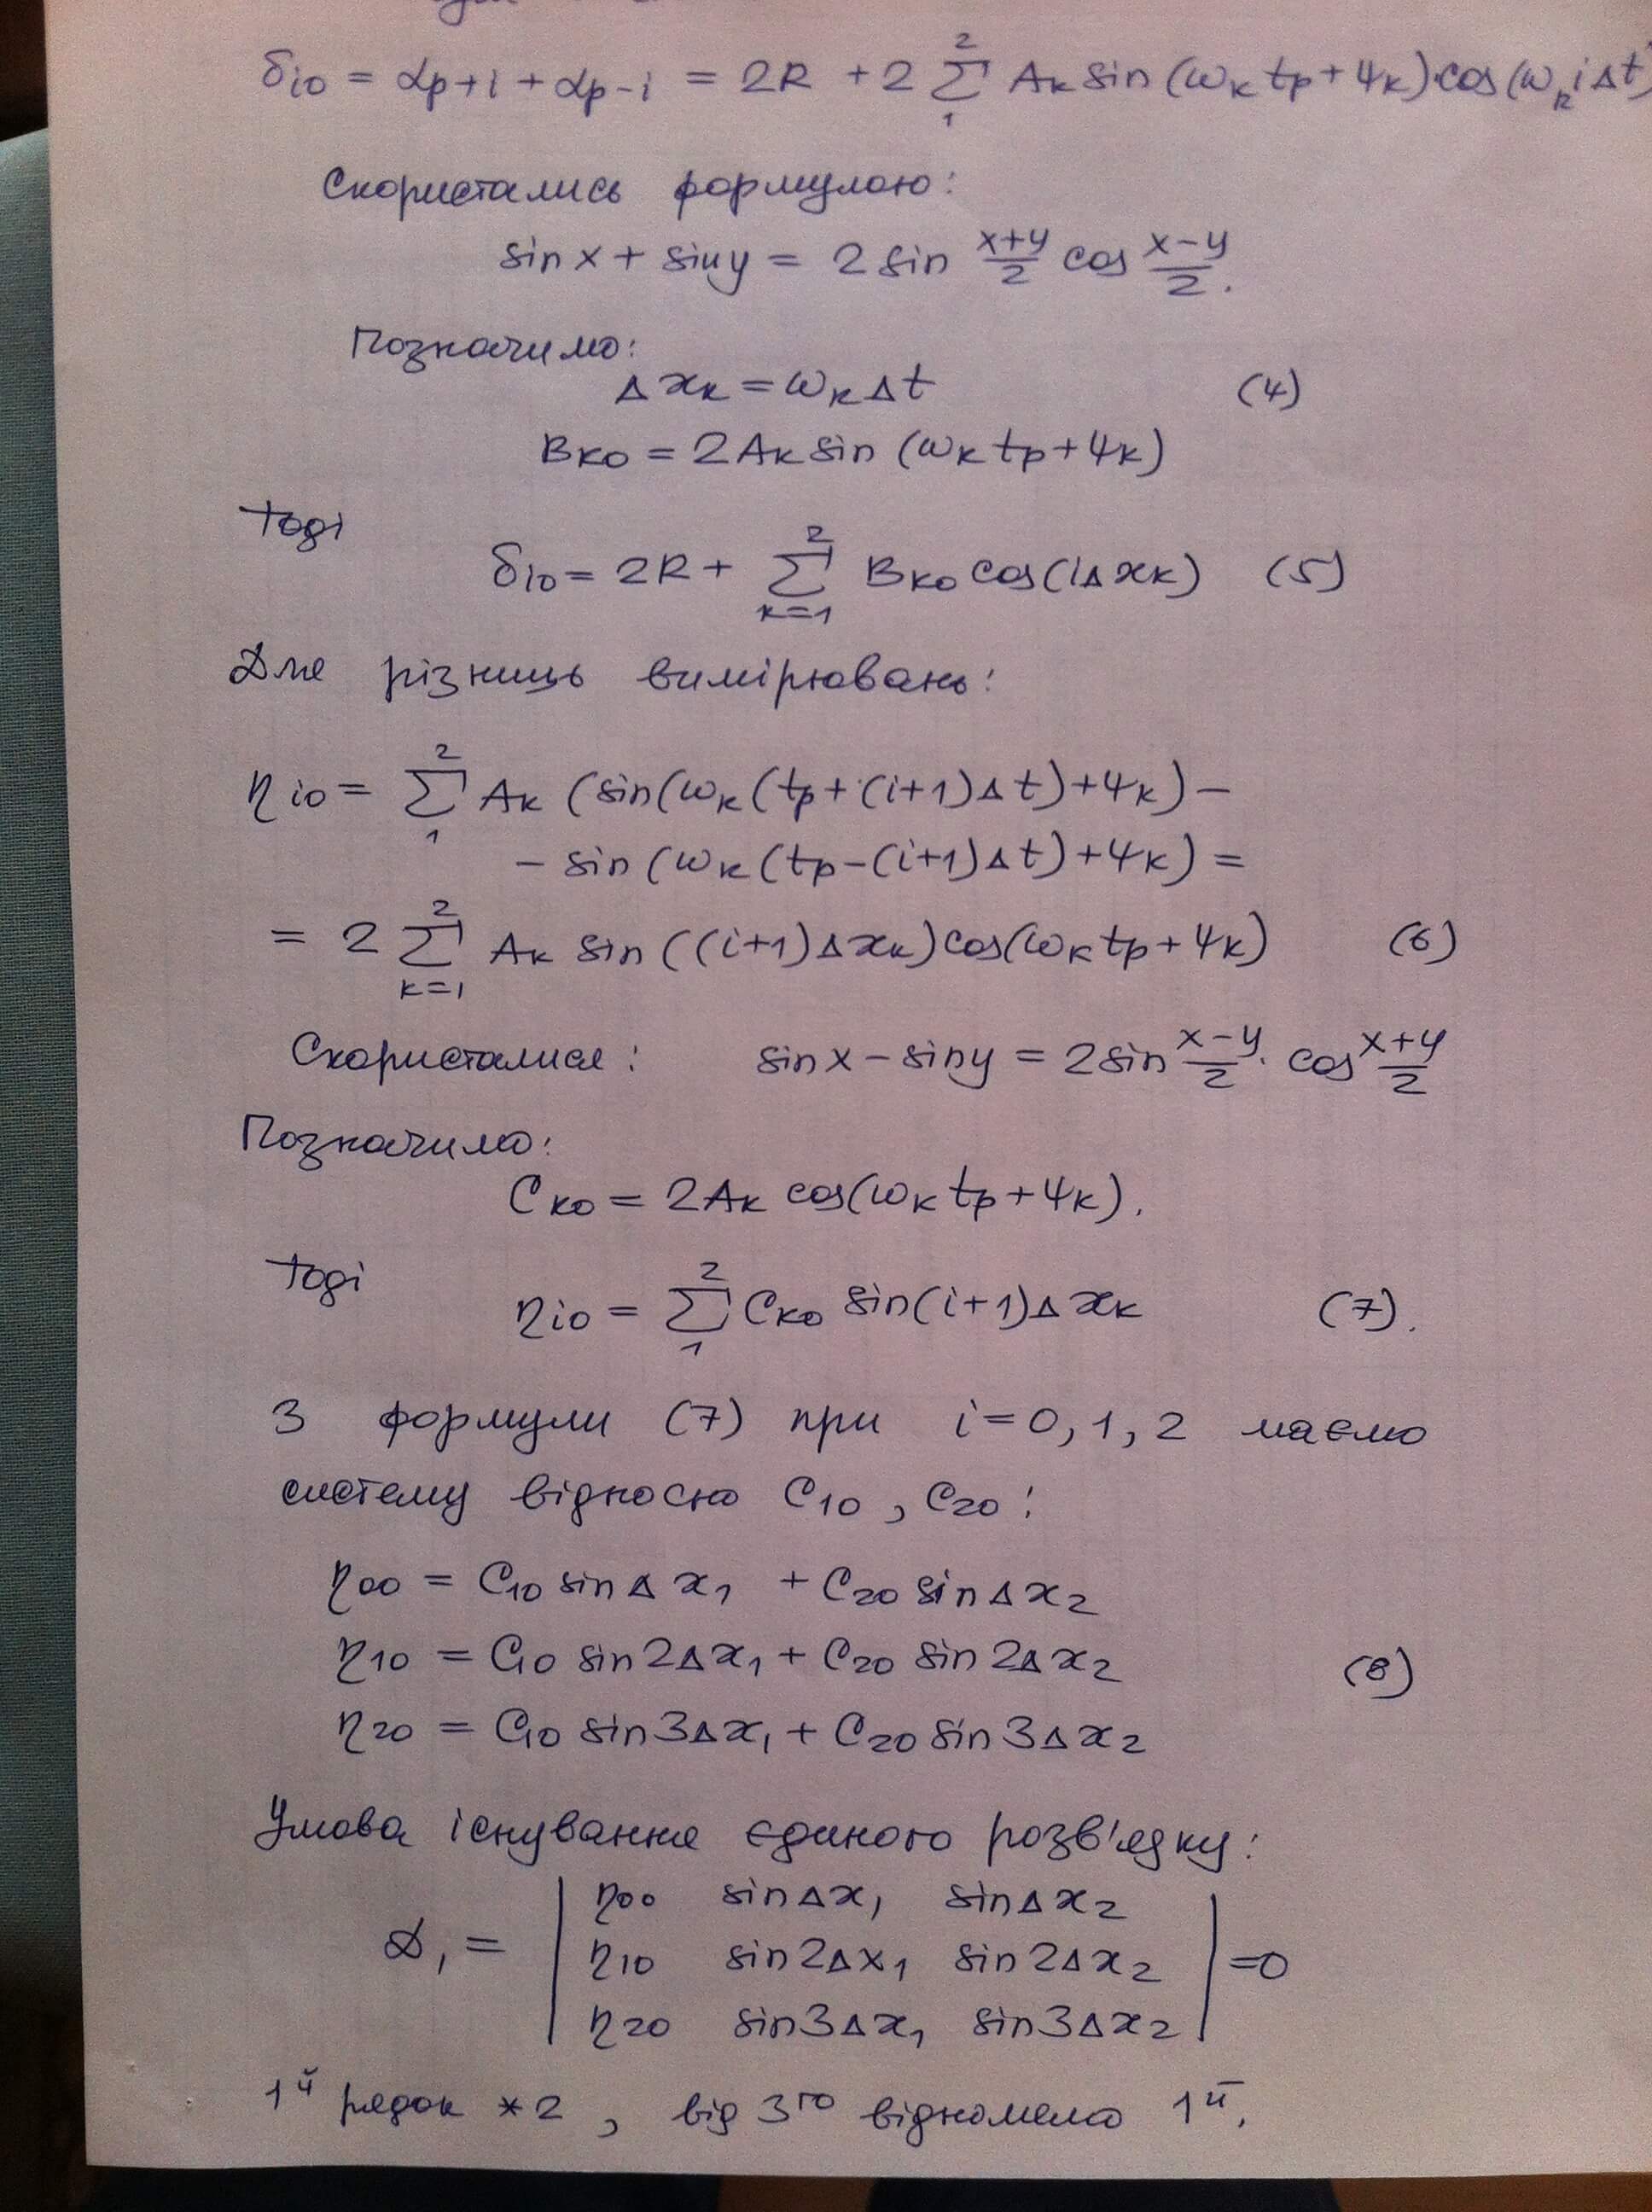 δi0 = αp+i + αp-i = 2R + 2 2∑1 Ak sin(ωk tp + φk)·cos(ωk iΔt)
Скористались формулою:
sin x + sin y = 2 sin (x+y)/2 cos (x-y)/2.
Позначимо:
Δxk = ωkΔt (4)
Bк0 = 2Aк sin(ωк tp + φк)
Тоді
δi0 = 2R + 2∑k=1 Bк0 cos(iΔxк) (5)
Для різниць вимірювань:
ηi0 = 2∑1 Aк (sin(ωк(tp+(i+1)Δt)+φк) -
- sin(ωк(tp-(i+1)Δt)+φк) =
= 2 2∑k=1 Aк sin((i+1)Δxк)cos(ωк tp+φк) (6)
Скористалися: sin x - sin y = 2 sin (x-y)/2 · cos (x+y)/2
Позначимо:
Cк0 = 2Aк cos(ωк tp+φк).
Тоді
ηi0 = 2∑1 Cк0 sin(i+1)Δxк (7).
З формули (7) при i=0,1,2 маємо
систему відносно C10, C20:
η00 = C10 sinΔx1 + C20 sinΔx2
η10 = C10 sin2Δx1 + C20 sin2Δx2 (8)
η20 = C10 sin3Δx1 + C20 sin3Δx2
Умова існування єдиного розв'язку:
| η00 sinΔx1 sinΔx2 |
D1 = | η10 sin2Δx1 sin2Δx2 | =0
| η20 sin3Δx1 sin3Δx2 |
1й рядок *2, від 3го віднімемо 1й.